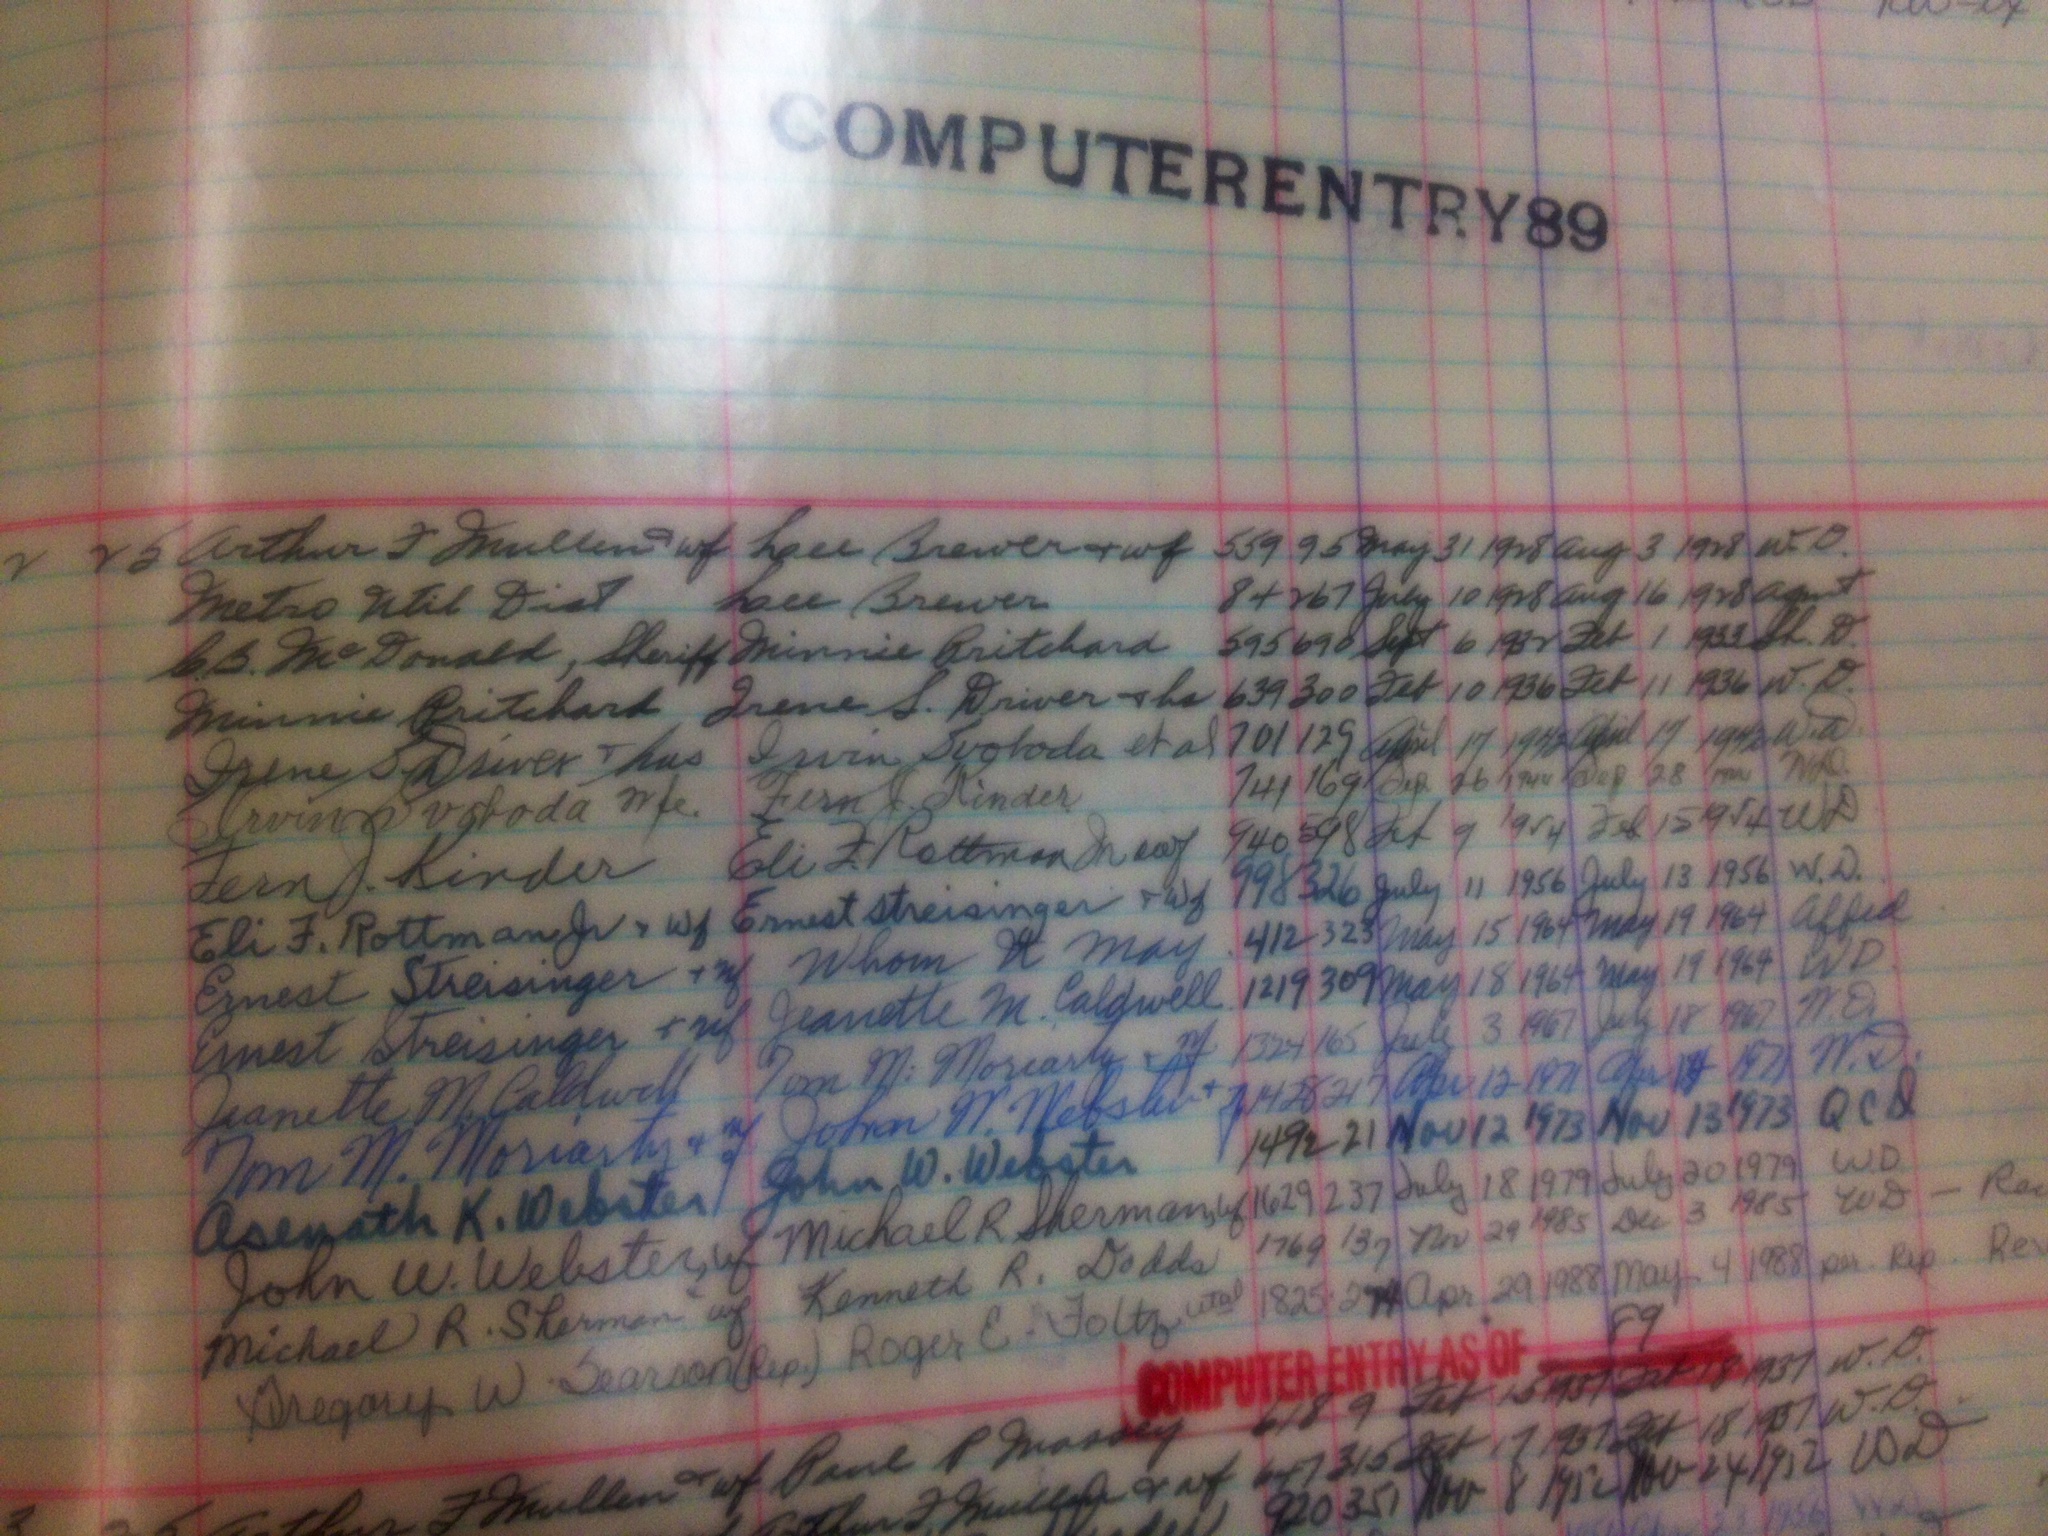 COMPUTERENTRY89
2 25 Arthur F Mullen + wf Lace Brewer + wf 559 95 May 31 1928 Aug 3 1928 W.D.
Metro Util Dist Lace Brewer 84 267 July 10 1928 Aug 16 1928 Agmt
McDonald, Sheriff Minnie Pritchard 595 690 Sept 6 1932 Feb 1 1933 Sh. D.
Minnie Pritchard Irene S. Driver + hs 639 300 Feb 10 1936 Feb 11 1936 W.D.
Irene S Driver + hus Irvin Svoboda et al 701 129 April 17 1942 April 17 1942 W.D.
Irvin Svoboda Fern J. Kinder 741 169 Sep 26 1944 Sep 28 W.D.
Fern J. Kinder Eli F. Rottman Jr + wf 940 598 Feb 9 1954 Feb 15 1954 WD
Eli F. Rottman Jr + wf Ernest Streisinger + wf 998 326 July 11 1956 July 13 1956 W.D.
Ernest Streisinger + wf Whom It May 412 323 May 15 1964 May 19 1964 Affid
Ernest Streisinger + wf Jeanette M. Caldwell 1219 309 May 18 1964 May 19 1964 WD
Jeanette M. Caldwell Tom M. Moriarty + wf 1324 165 3 1967 July 18 1967 W.D.
Tom M. Moriarty + wf John W. Webster + 217 Apr 12 1971 Apr 1971 W.D.
Asenath K. Webster John W. Webster 1492 21 Nov 12 1973 Nov 13 1973 QCD
John W. Webster, wf Michael R Sherman, wf 1629 237 July 18 1979 July 20 1979 WD
Michael R. Sherman + wf Kenneth R. Dodds 1769 137 Nov 29 1985 Dec 3 1985 WD — Rev
Gregory W Searson (Rep.) Roger E. Foltz etal 1825 274 Apr. 29 1988 May 4 1988 per. Rep. Rev
COMPUTER ENTRY AS OF 89
3 25 Arthur F Mullen + wf Paul P Massey 618 9 Feb 15 1937 Feb 18 1937 W.D.
Arthur F. Mullen + wf 315 Feb 17 1937 Feb 18 1937 W.D.
920 351 Nov 8 1952 Nov 24 1952 WD